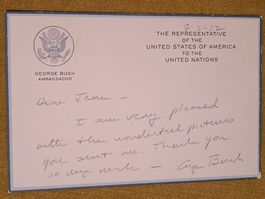 8-2-72
THE REPRESENTATIVE
OF THE
UNITED STATES OF AMERICA
TO THE
UNITED NATIONS
GEORGE BUSH
AMBASSADOR
Dear Jean –
I am very pleased
with the wonderful pictures
you sent me. Thank you
so very much – Bush